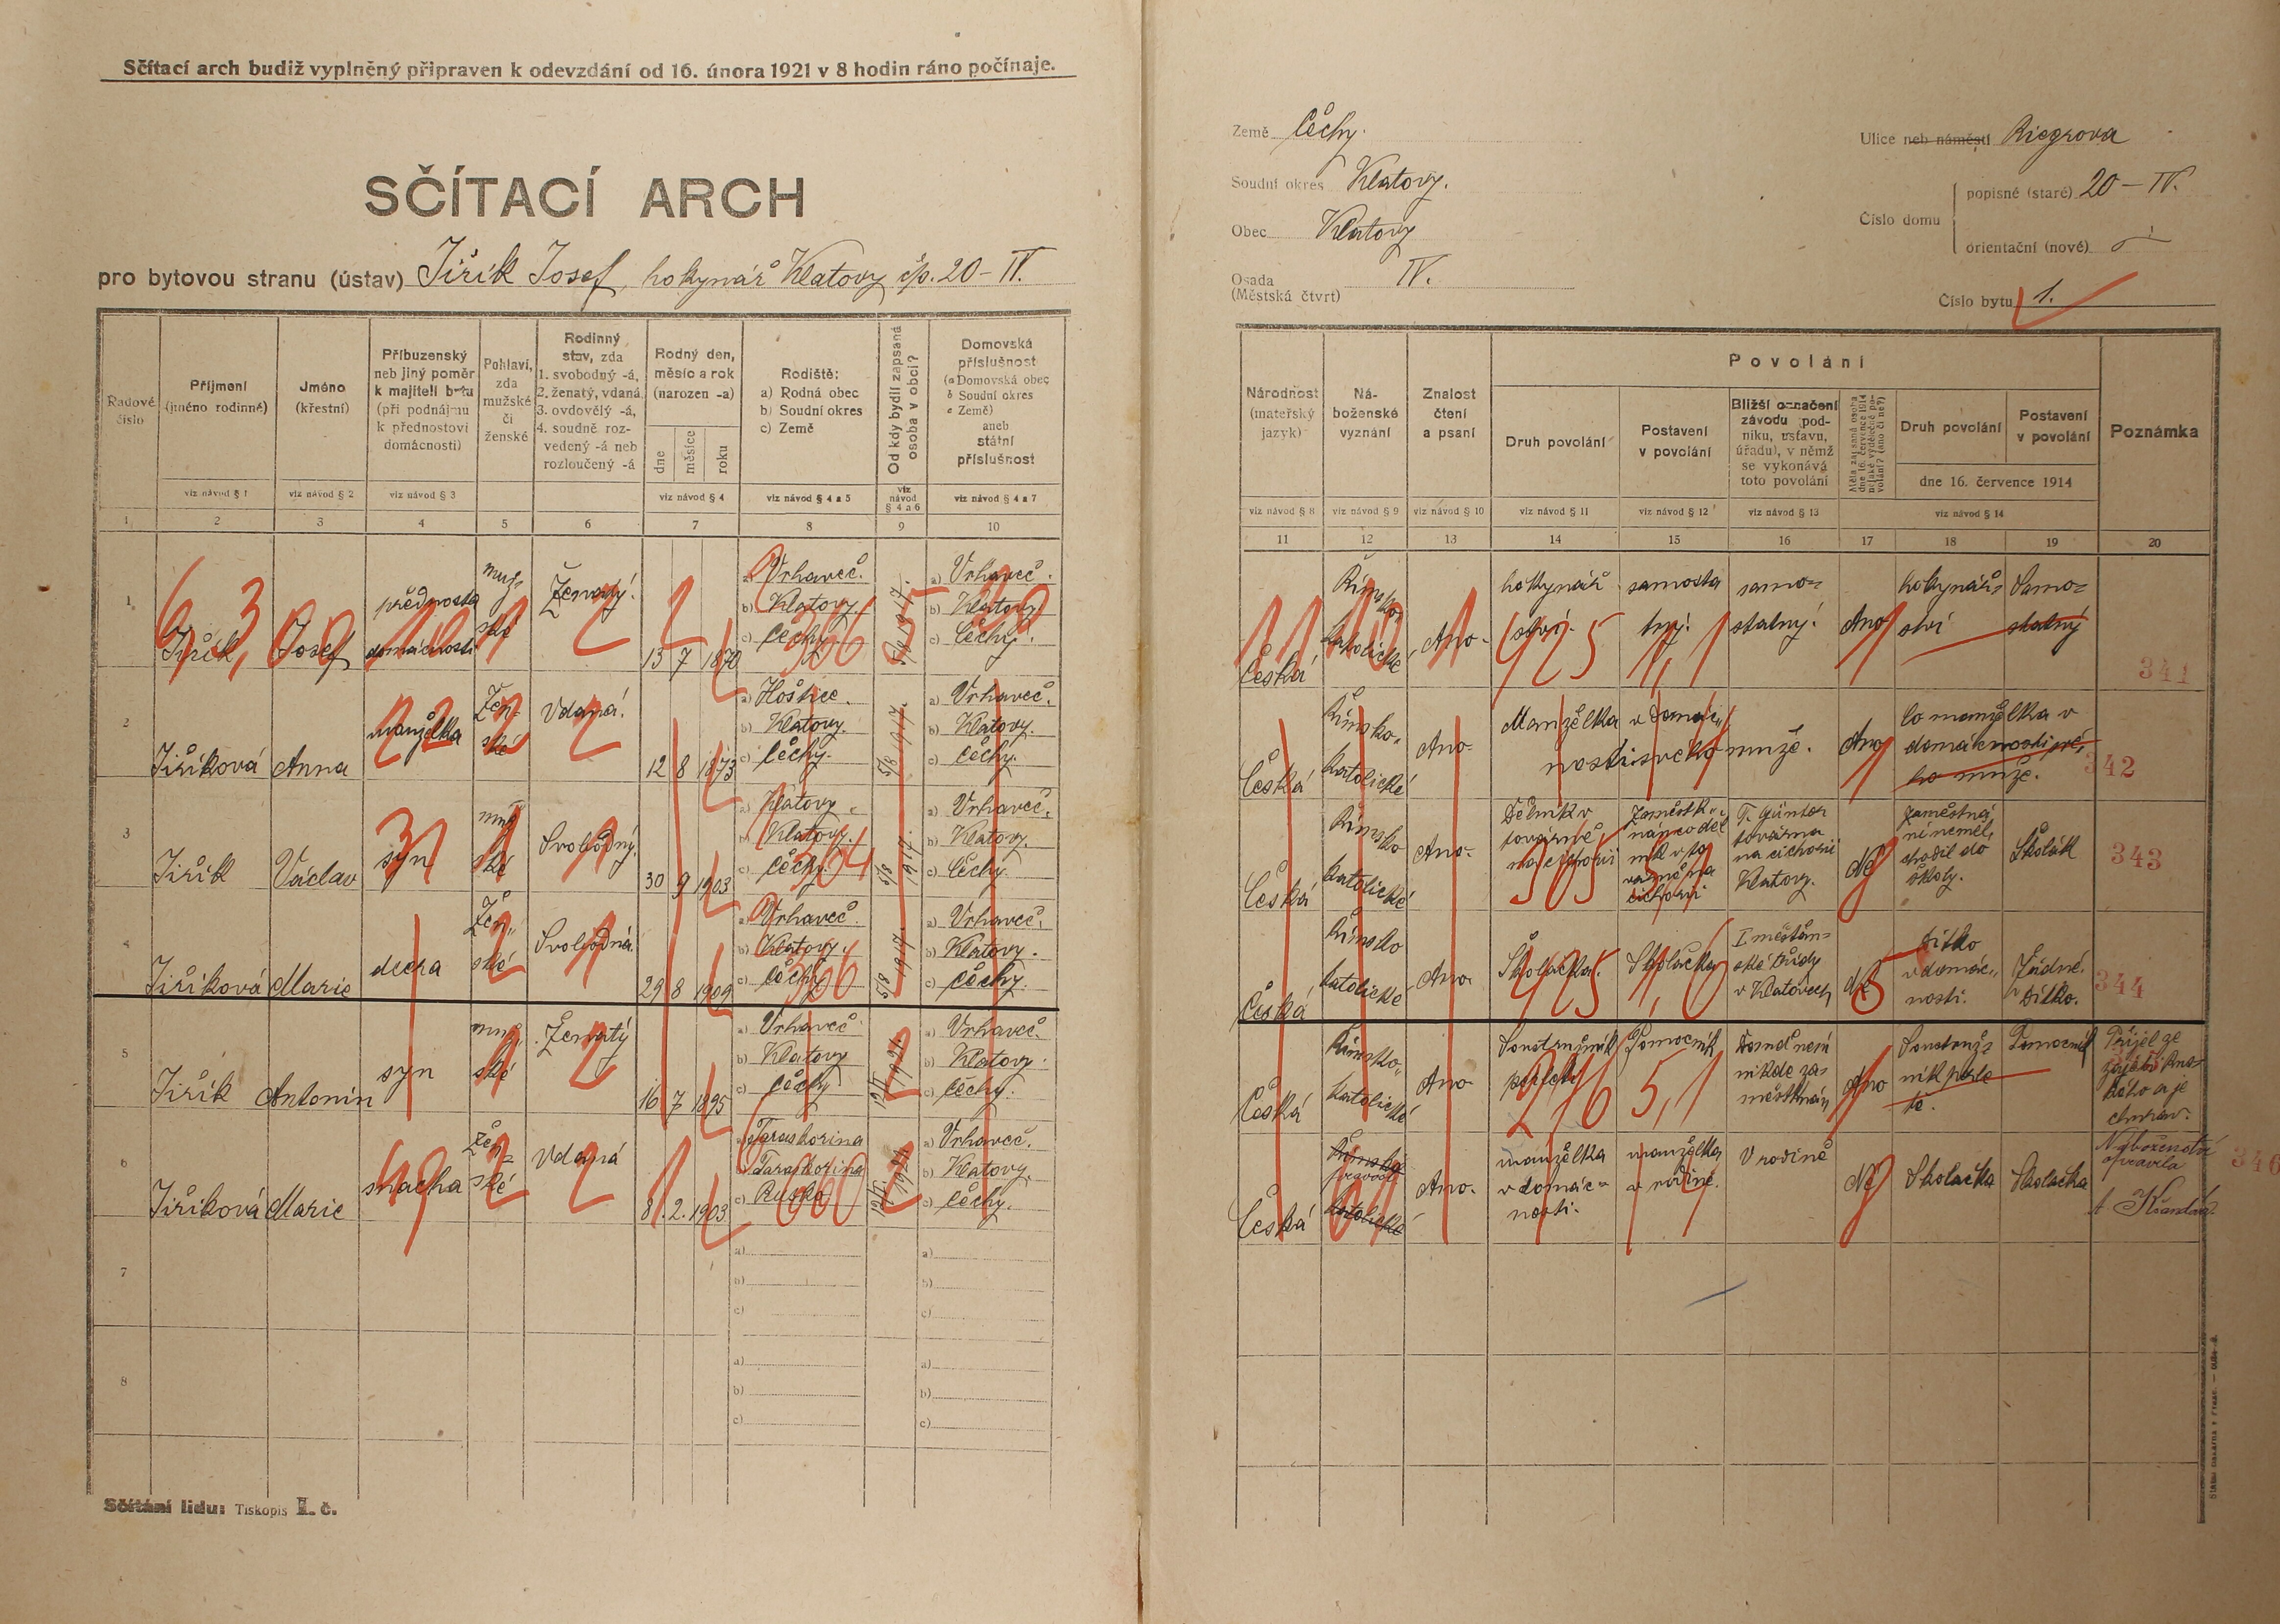 Sčítací arch budiž vyplněný připraven k odevzdání od 16. února 1921 v 8 hodin ráno počínaje.
SČÍTACÍ ARCH
pro bytovou stranu (ústav) Jiřík Josef, hokynář Klatovy čp. 20-IV.
Řadové číslo
Příjmení (jméno rodinné)
Jméno (křestní)
Příbuzenský neb jiný poměr k majiteli bytu (při podnájmu k přednostovi domácnosti)
Pohlaví, zda mužské či ženské
Rodinný stav, zda 1. svobodný -á, 2. ženatý, vdaná, 3. ovdovělý -á, 4. soudně rozvedený -á neb rozloučený -á
Rodný den, měsíc a rok (narozen -a)
dne měsíce roku
Rodiště: a) Rodná obec b) Soudní okres c) Země
Od kdy bydlí zapsaná osoba v obci?
Domovská příslušnost (a Domovská obec b Soudní okres c Země) aneb státní příslušnost
viz návod § 1 viz návod § 2 viz návod § 3 viz návod § 4 viz návod § 4 a 5 viz návod § 4 a 6 viz návod § 4 a 7
1 2 3 4 5 6 7 8 9 10
1 Jiřík Josef přednosta domácnosti muž- ské Ženatý. 13 7 1870 a) Vrhaveč. b) Klatovy. c) Čechy. 5/8 1917. a) Vrhaveč. b) Klatovy. c) Čechy.
2 Jiříková Anna manželka Žen- ské Vdaná. 12 8 1873 a) Hoštice. b) Klatovy. c) Čechy. 5/8 1917. a) Vrhaveč. b) Klatovy. c) Čechy.
3 Jiřík Václav syn muž ské Svobodný. 30 9 1903 a) Klatovy. b) Klatovy. c) Čechy. 5/8 1917. a) Vrhaveč. b) Klatovy. c) Čechy.
4 Jiříková Marie dcera Žen- ské Svobodná. 29 8 1909 a) Vrhaveč. b) Klatovy. c) Čechy 5/8 1917. a) Vrhaveč. b) Klatovy. c) Čechy.
5 Jiřík Antonín syn muž ské Ženatý 16 7 1895 a) Vrhaveč b) Klatovy c) Čechy 1921. a) Vrhaveč. b) Klatovy. c) Čechy.
6 Jiříková Marie snacha Žen- ské Vdaná 8. 2. 1903 c) Rusko 1921 a) Vrhaveč. b) Klatovy. c) Čechy.
7 a) b) c) a) b) c)
8 a) b) c) a) b) c)
Sčítání lidu: Tiskopis II. č.
Země Čechy.
Soudní okres Klatovy.
Obec Klatovy
Osada (Městská čtvrť) IV.
Ulice neb náměstí Riegrova
Číslo domu
popisné (staré) 20-IV.
orientační (nové)
Číslo bytu 1.
Národnost (mateřský jazyk)
Náboženské vyznání
Znalost čtení a psaní
Povolání
Druh povolání
Postavení v povolání
Bližší označení závodu (podniku, ústavu, úřadu), v němž se vykonává toto povolání
Měla zapsaná osoba dne 16. července 1914 nějaké výdělečné povolání? (ano či ne?)
Druh povolání
Postavení v povolání
dne 16. července 1914
Poznámka
viz návod § 8 viz návod § 9 viz návod § 10 viz návod § 11 viz návod § 12 viz návod § 13 viz návod § 14
11 12 13 14 15 16 17 18 19 20
Česká Římsko- katolické Ano- hokynář- ství. samosta tný. samo- statný. Ano hokynář- ství Samo- statný 341
Česká Římsko- katolické Ano- Manželka v domác- nosti svého muže. Ano Co manželka v domácnosti své- ho muže. 342
Česká Římsko katolické Ano- Dělník v továrně na cichorii Klatovy. Ne Zaměstná ní neměl, chodil do školy. Školák 343
Česká Římsko katolické Ano- Školačka. Školačka I měšťan- ské třídy v Klatovech Ne Dítko v domác- nosti. Žádné. Dítko. 344
Česká Římsko- katolické Ano Pomocník Posud není nikde za- městnán Ano Pomocník Přijel ze zajetí Rus- kého a je churav.
Česká Římsko pravosl. katolické Ano- manželka v domác- nosti. manželka v rodině. V rodině Ne Školačka Školačka Náboženství opravila 346